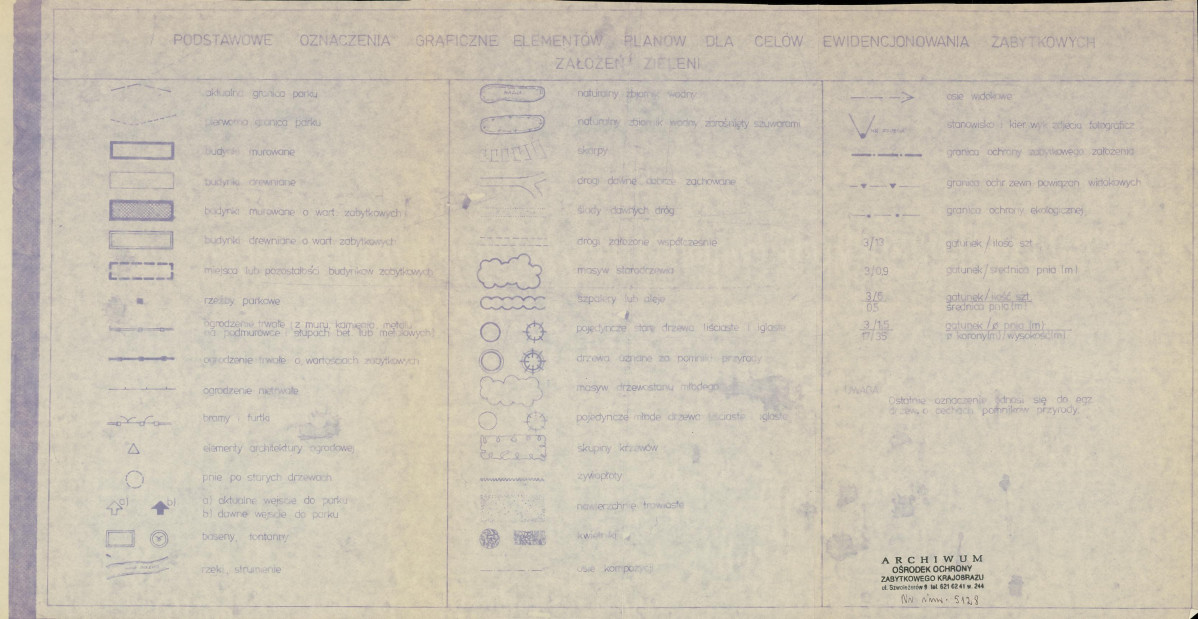 PODSTAWOWE OZNACZENIA GRAFICZNE ELEMENTÓW PLANÓW DLA CELÓW EWIDENCJONOWANIA ZABYTKOWYCH
ZAŁOŻEŃ ZIELENI
aktualna granica parku
pierwotna granica parku
budynki murowane
budynki drewniane
budynki murowane o wart. zabytkowych
budynki drewniane o wart. zabytkowych
miejsca lub pozostałości budynków zabytkowych
rzeźby parkowe
ogrodzenie trwałe z muru, kamienia, metalu,
na podmurówce i słupach bet. lub metalowych
ogrodzenie trwałe o wartościach zabytkowych
ogrodzenie nietrwałe
bramy i furtki
elementy architektury ogrodowej
pnie po starych drzewach
a) b)
a) aktualne wejście do parku
b) dawne wejście do parku
baseny, fontanny
rzeki, strumienie
naturalny zbiornik wodny
naturalny zbiornik wodny zarośnięty szuwarami
skarpy
drogi dawne dobrze zachowane
ślady dawnych dróg
drogi założone współcześnie
masyw starodrzewia
szpalery lub aleje
pojedyncze stare drzewa liściaste i iglaste
drzewa uznane za pomniki przyrody
masyw drzewostanu młodego
pojedyncze młode drzewa liściaste i iglaste
skupiny krzewów
żywopłoty
nawierzchnie trawiaste
kwietniki
osie kompozycji
osie widokowe
stanowisko i kier. wyk. zdjęcia fotograficz.
granica ochrony zabytkowego założenia
granica ochr. zewn. powiązań widokowych
granica ochrony ekologicznej
3/13 gatunek / ilość szt.
3/0,9 gatunek / średnica pnia (m)
3/6 gatunek / ilość szt.
0,5 średnica pnia (m)
3/1,5 gatunek / ø pnia (m)
17/35 ø korony (m) / wysokość (m)
UWAGA:
Ostatnie oznaczenie odnosi się do egz.
drzew o cechach pomników przyrody.
ARCHIWUM
OŚRODEK OCHRONY
ZABYTKOWEGO KRAJOBRAZU
ul. Szwoleżerów 9 tel. 621 62 41 w. 244
5128